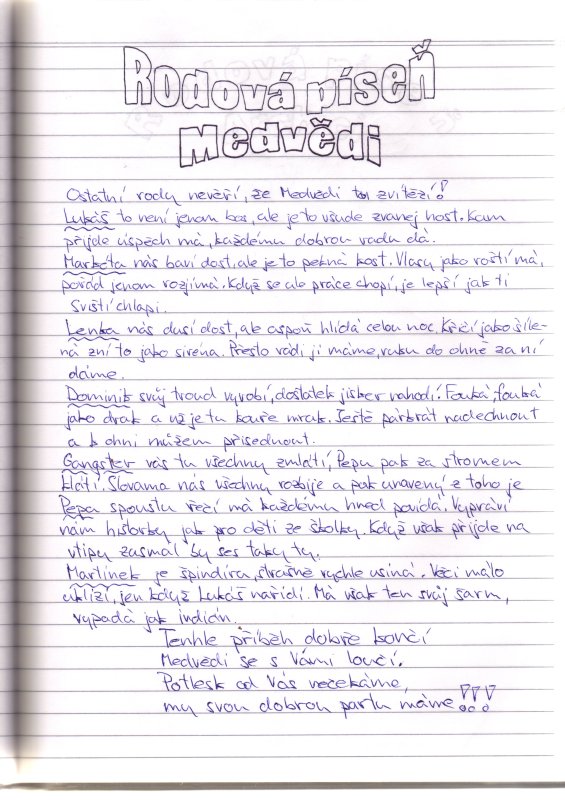 Rodová píseň
Medvědi
Ostatní rody nevěří, že Medvědi to zvítězí!
Lukáš to není jenom bas, ale je to všude zvanej host. Kam
přijde úspěch má, každému dobrou radu dá.
Markéta nás baví dost, ale je to pěkná kost. Vlasy jako roští má,
pořád jenom rozjímá. Když se ale práce chopí, je lepší jak ti
svišti chlapi.
Lenka nás dusí dost, ale aspoň hlídá celou noc. Křičí jako šíle-
ná zní to jako siréna. Přesto rádi ji máme, ruku do ohně za ní
dáme.
Dominik svůj troud vyrobí, dostatek jisker nahodí. Fouká, fouká
jako drak a už je tu kouře mrak. Ještě párkrát nadechnout
a k ohni můžem přisednout.
Gangster vás tu všechny zmlátí, Pepu pak za stromem
klátí. Slovama nás všechny rozbije a pak unavený z toho je
Pepa spoustu řečí má každému hned povídá. Vypráví
nám historky jak pro děti ze školky. Když však přijde na
vtipy zasmál by ses taky ty.
Martínek je špindíra, strašně rychle usíná. Věci málo
uklízí, jen když Lukáš nařídí. Má však ten svůj šarm,
vypadá jak indián.
Tenhle příběh dobře končí
Medvědi se s Vámi loučí.
Potlesk od Vás nečekáme,
my svou dobrou partu máme!!!